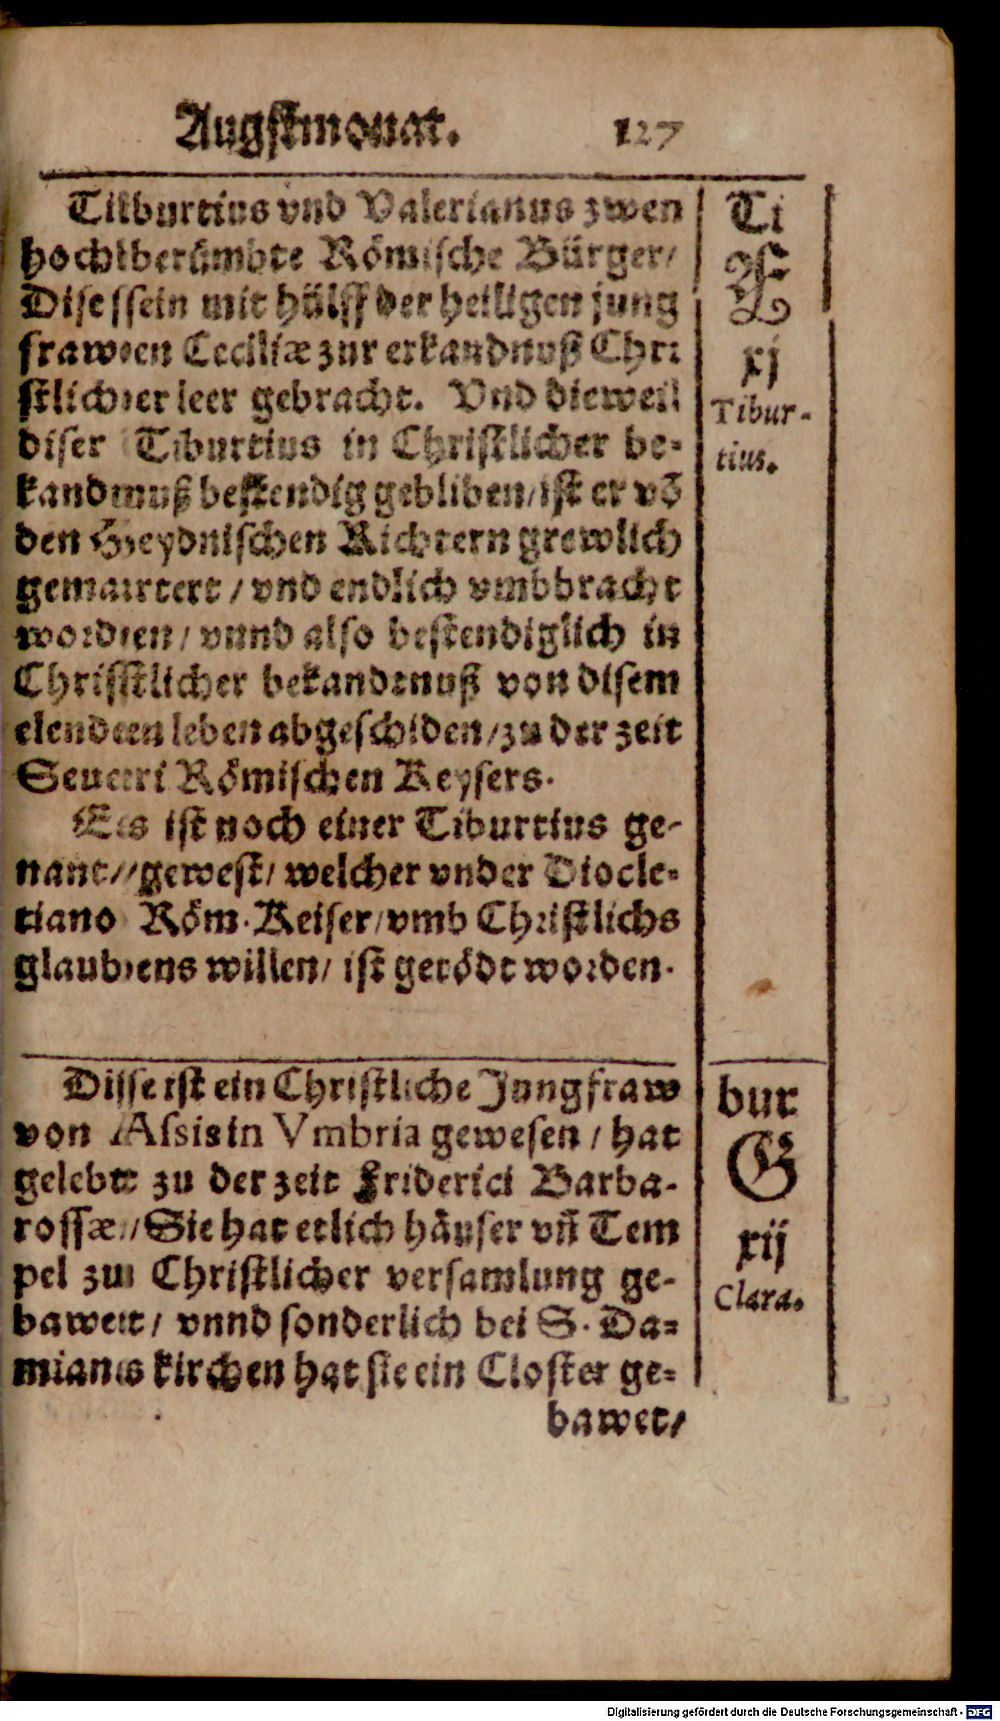 Augstmonat. 127
Tiburtius vnd Valerianus zwen
hochberümbte Römische Bürger/
Dise sein mit hülff der heiligen jung
frawen Ceciliæ zur erkandnuß Chri
stlicher leer gebracht. Vnd dieweil
diser Tiburtius in Christlicher be-
kandnuß bestendig gebliben/ ist er vō
den Heydnischen Richtern grewlich
gemartert / vnd endlich vmbbracht
worden/ vnnd also bestendiglich in
Christlicher bekandtnuß von disem
elenden leben abgeschiden/ zu der zeit
Seueri Römischen Keysers.
Es ist noch einer Tiburtius ge-
nant/ gewest/ welcher vnder Diocle-
tiano Röm. Keiser/ vmb Christlichs
glaubens willen/ ist getödt worden.
Ti
F
xj
Tibur-
tius.
Dise ist ein Christliche Jungfraw
von Assis in Vmbria gewesen / hat
gelebt zu der zeit Friderici Barba-
rossæ/ Sie hat etlich häuser vn̄ Tem
pel zu Christlicher versamlung ge-
bawet/ vnnd sonderlich bei S. Da-
mians kirchen hat sie ein Closter ge-
bawet/
bur
G
xij
Clara.
Digitalisierung gefördert durch die Deutsche Forschungsgemeinschaft - DFG